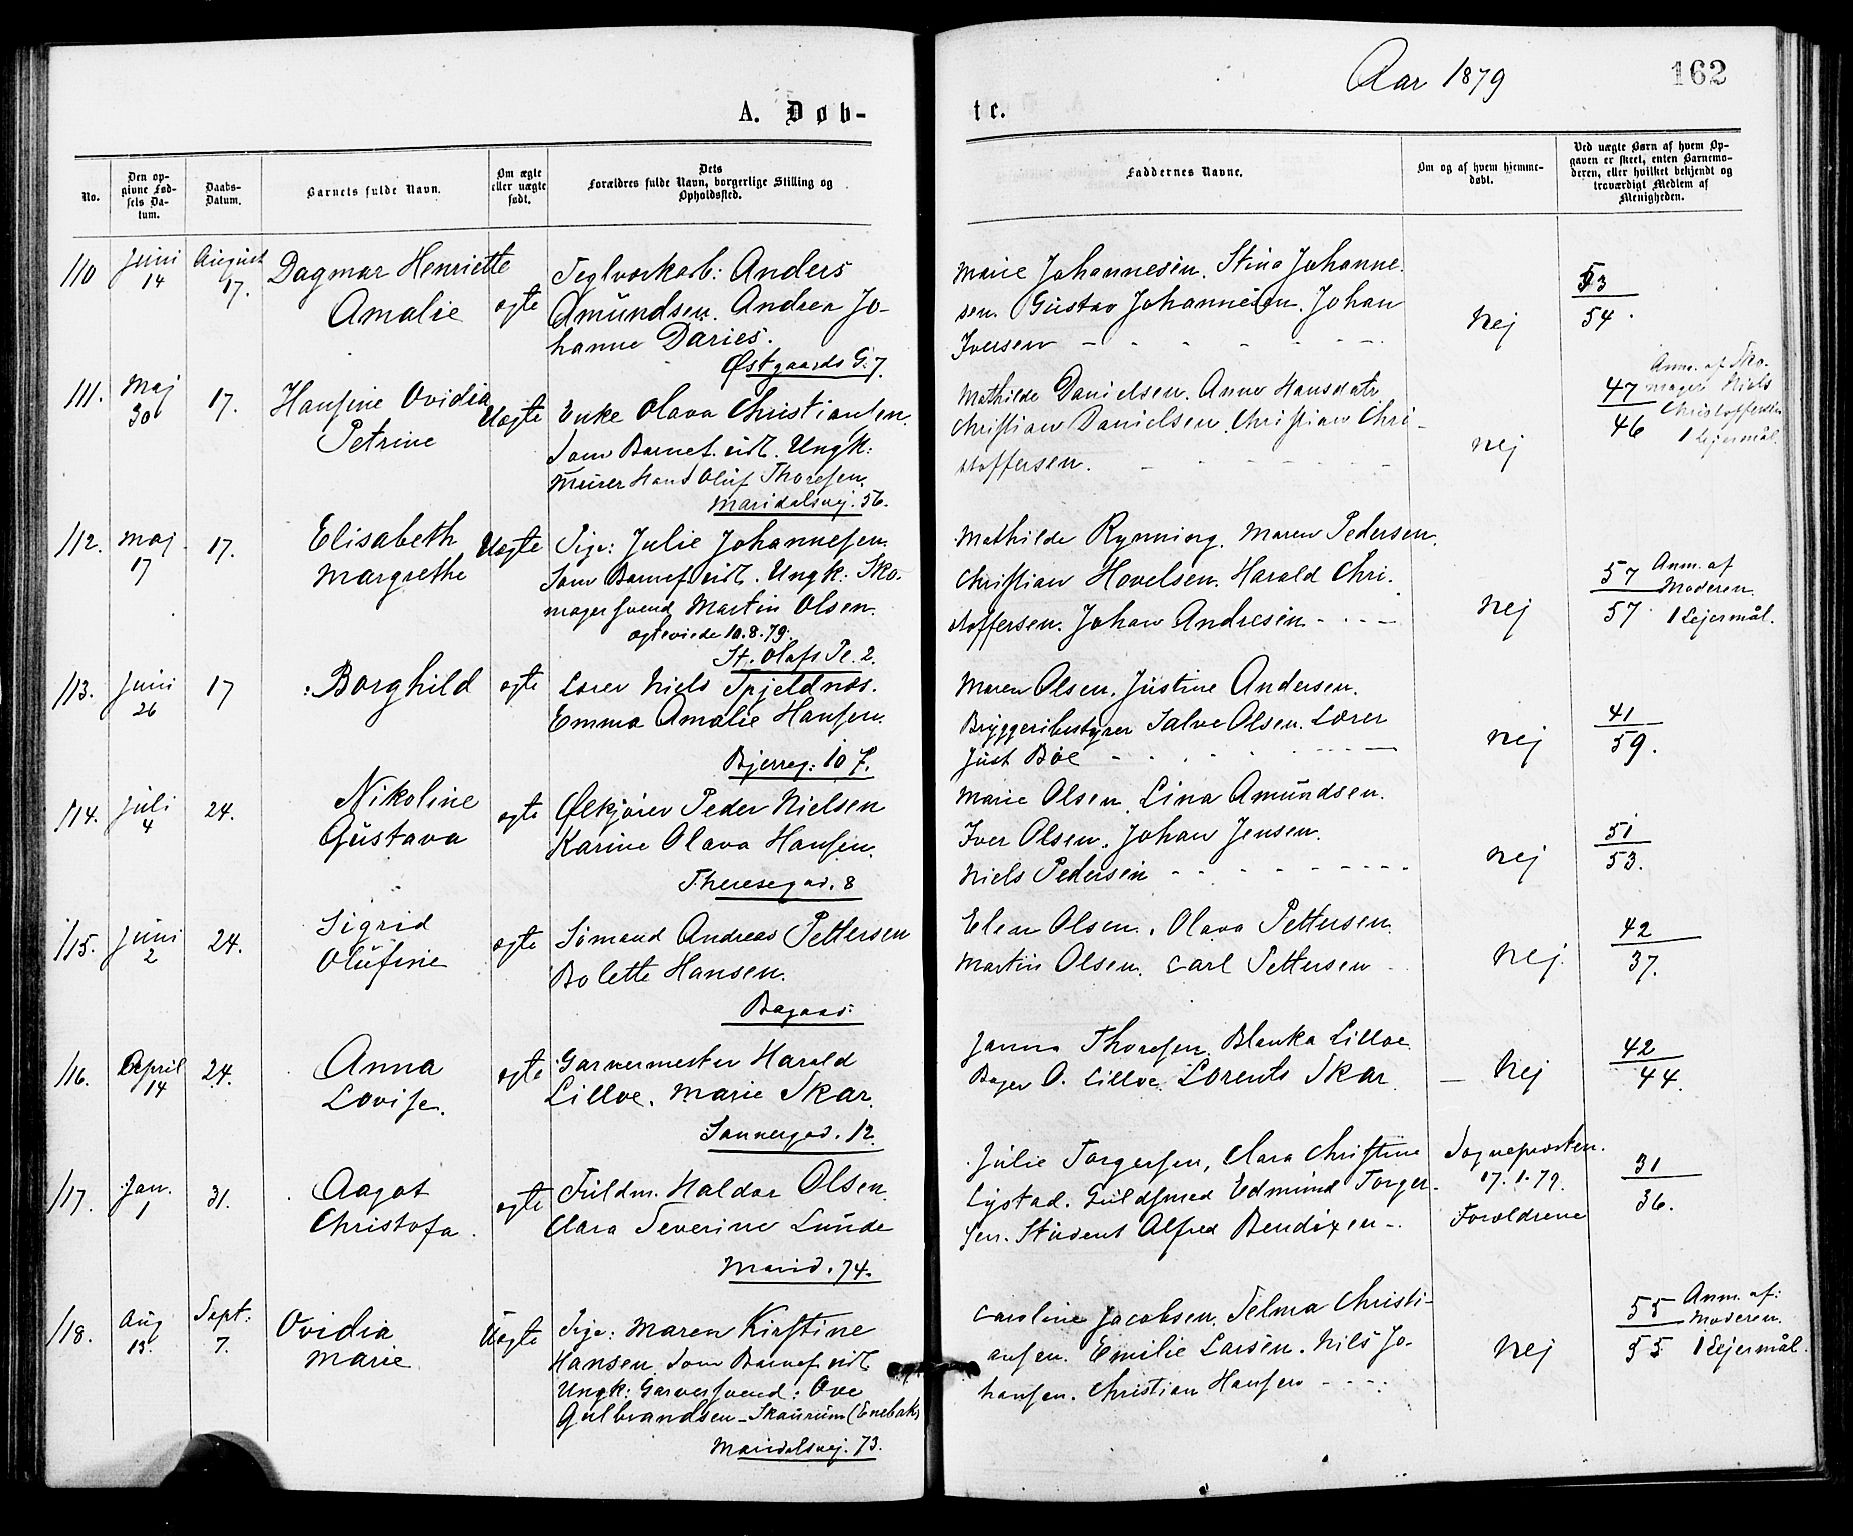 Aar 1879
162
A. Døb-
te.
No.
Den op-
givne Fød-
sels Da-
tum.
Daabs-
Datum.
Barnets fulde Navn.
Om ægte
eller uægte
født.
Dets
Forældres fulde Navn, borgerlige Stilling og
Opholdssted.
Faddernes Navne.
Om og af hvem hjemme-
døbt.
Ved uægte Børn af hvem Op-
gaven er skeet, enten Barnemo-
deren, eller hvilket bekjendt og
troværdigt Medlem af
Menigheden.
110
Juni
14
August
17.
Dagmar Henriette
Amalie
ægte
Teglværkarb: Anders
Amundsen. Andrea Jo-
hanne Daries.
Østgaards G. 7.
Marie Johannesen. Stina Johanne-
sen. Gustav Johannesen. Johan
Iversen
Nej
53
54.
111.
Maj
30
17.
Hansine Ovidia
Petrine
Uægte
Enke Olava Christiansen.
Som Barnef. udl. Ungk:
Murer Hans Oluf Thoresen.
Maridalsvej. 56.
Mathilde Danielsen. Anne Hansdatr
Christian Danielsen. Christian Chri-
stoffersen.
Nej
47
46
Anm. af Sko-
mager Niels
Christoffersen
1 Lejermål.
112.
Maj
17
17.
Elisabeth
Margrethe
Uægte
Pige: Julie Johannesen.
Som Barnef. udl. Ungk: Sko-
magersvend Martin Olsen.
ægteviede 10.8.79.
St. Olafs Pl. 2.
Mathilde Rynning. Maren Pedersen.
Christian Hovelsen. Harald Chri-
stoffersen. Johan Andresen
Nej
57
57
Anm. af
Moderen.
1 Lejermål.
113.
Juni
26
17
Borghild
ægte
Lærer Niels Spjeldnæs.
Emma Amalie Hansen.
Bjerreg: 10 F.
Maren Olsen. Justine Andersen.
Bryggeribestyrer Salve Olsen. Lærer
Just Bøe
Nej
41
59.
114.
Juli
4
24.
Nikoline
Gustava
ægte
Ølkjører Peder Nielsen
Karine Olava Hansen.
Theresegad. 8
Marie Olsen. Lina Amundsen.
Iver Olsen. Johan Jensen.
Niels Pedersen
Nej
51
53.
115.
Juni
2
24.
Sigrid
Olufine
ægte
Sømand Andreas Pettersen
Bolette Hansen.
Bagaas:
Elen Olsen. Olava Pettersen.
Martin Olsen. Carl Pettersen
Nej.
42
37.
116.
April
14
24.
Anna
Lovise.
ægte
Garvermester Harald
Lilloe. Marie Skar.
Sannergad. 12.
Janna Thoresen. Blanka Lilloe.
Bager O. Lilloe. Lorents Skar.
Nej
42
44.
117.
Jan.
1
31.
Aagot
Christofa.
ægte
Fuldm. Haldor Olsen.
Clara Severine Lunde
Marid. 74.
Julie Torgersen, Clara Christine
Lystad. Guldsmed Edmund Torger-
sen. Student Alfred Bendixen
Sognepresten.
17.1.79.
Forældrene
31
36.
118.
Aug
13.
Sept:
7.
Ovidia
Marie
Uægte
Pige: Maren Kirstine
Hansen. Som Barnef. udl.
Ungk: Garversvend: Ove
Gulbrandsen - Skaurum (Enebak)
Maridalsvej. 73.
Caroline Jacobsen. Selma Christi-
ansen. Emilie Larsen. Nils Jo-
hansen. Christian Hansen
Nej
55
55
Anm. af:
Moderen.
1 Lejermål.